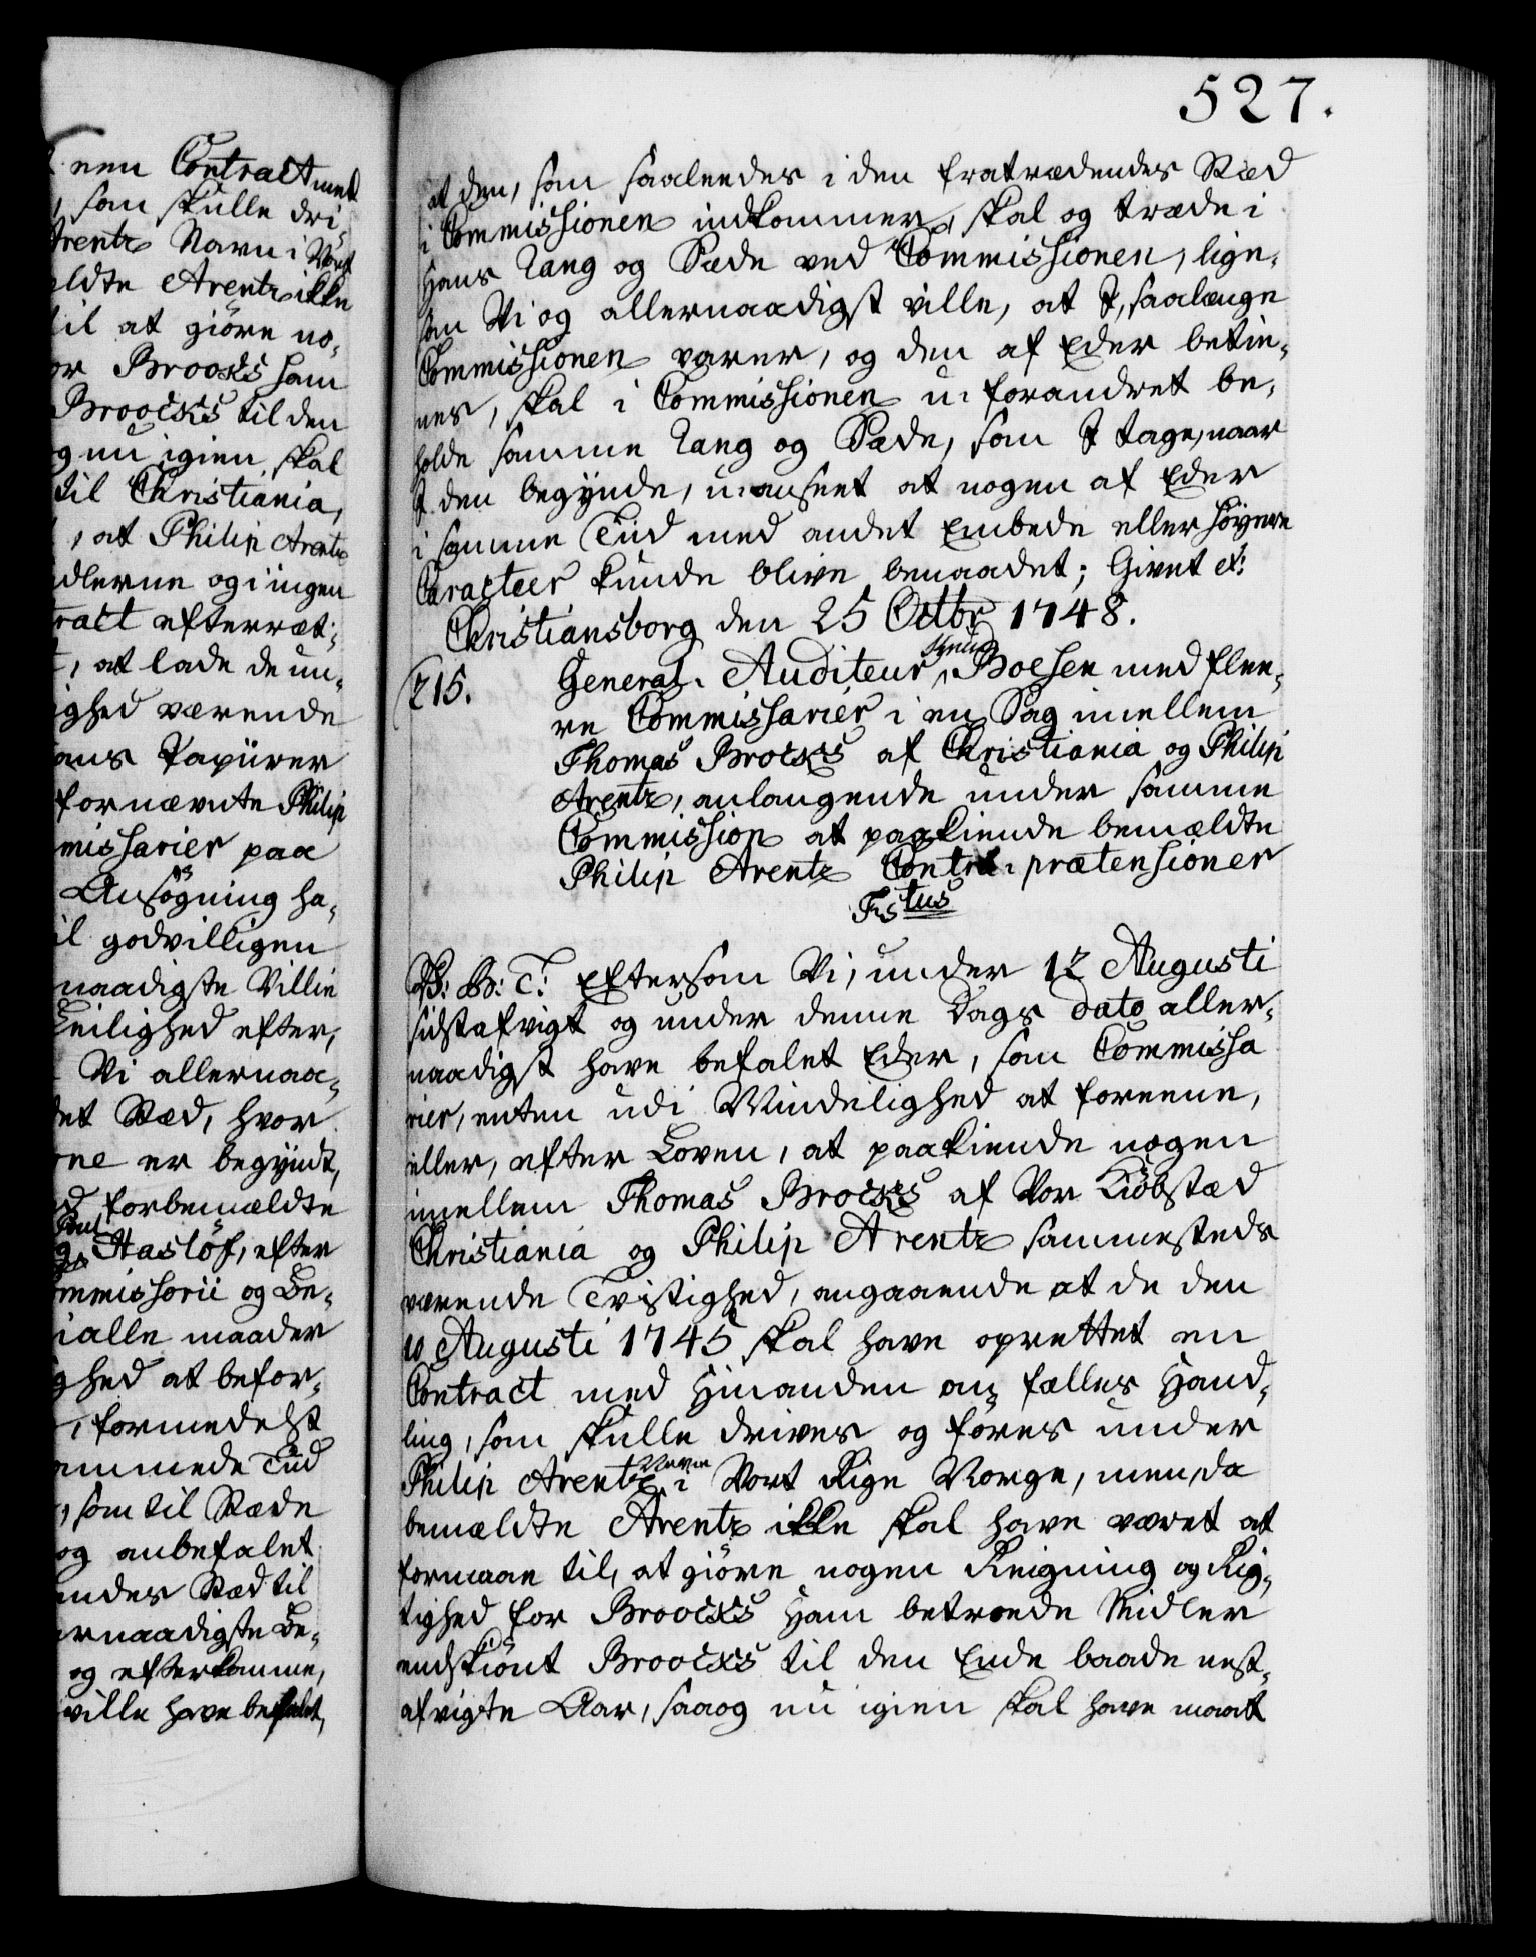 527.
at den, som saaleedes i den fratrædendes Stæd
i Commissionen indkommer, skal og træde i
hans Rang og Sæde ved Commissionen, lige-
som Vi og allernaadigst ville, at I, saalænge
Commissionen varer, og den af Eder betie-
nes, skal i Commissionen u-forandret be-
holde samme Rang og Sæde, som I tage, naar
I den begynde, u-anseet at nogen af Eder
i samme Tiid med andet Embede eller høyere
Caracteer kunde blive benaadet; Givet et:
Christiansborg den 25 Octbr 1748.
215.
General-Auditeur Knud Boesen med flee-
re Commissarier i en Sag imellem
Thomas Broocks af Christiania og Philip
Arentz, anlangende under samme
Commission at paakiende bemældte
Philip Arentz Contra-prætensioner
F5tus
P: B: T: Eftersom Vi, under 12 Augusti
sidstafvigt og under denne Dags dato aller-
naadigst have befalet Eder, som Commissa
rier, enten udi Mindelighed at foreene,
eller, efter Loven, at paakiende nogen
imellem Thomas Broocks af Vor Kiöbstæd
Christiania og Philip Arentz sammesteds
værende Tvistighed, angaaende at de den
10 Augusti 1745 skal have oprettet en
Contract med hinanden om fælles Hand-
ling, som skulle drives og føres under
Philip Arentz Navn i Vort Rige Norge, men da
bemældte Arentz ikke skal have været at
formaae til, at giöre nogen Reigning og Rig-
tighed for Broocks ham betroede Midler
endskiönt Broocks til den Ende baade nest-
afvigte Aar, saa og nu igien skal have maat
nen Contract med
, som skulle dri-
Arentz Navn i Vort
ældte Arentz ikke
til at giöre no-
or Broocks ham
Broocks til den
og nu igien skal
til Christiania,
, at Philip Arentz
dlerne og i ingen
ract efterret-
, at lade de un-
ighed værende
ans Papiirer
fornævnte Philip
missarier paa
Ansøgning ha-
il godvilligen
naadigste Villie
Leilighed efter,
Vi allernaa-
det Stæd, hvor
ne er begyndt,
d forbemældte
Poul
Hasløf, efter
ommissorii og Be-
i alle maader
ghed at befor-
, formedelst
ammede Tiid
, som til Stæde
og anbefalet
endes Stæd til
ernaadigste Be-
og efterkomme,
ville have befalet,